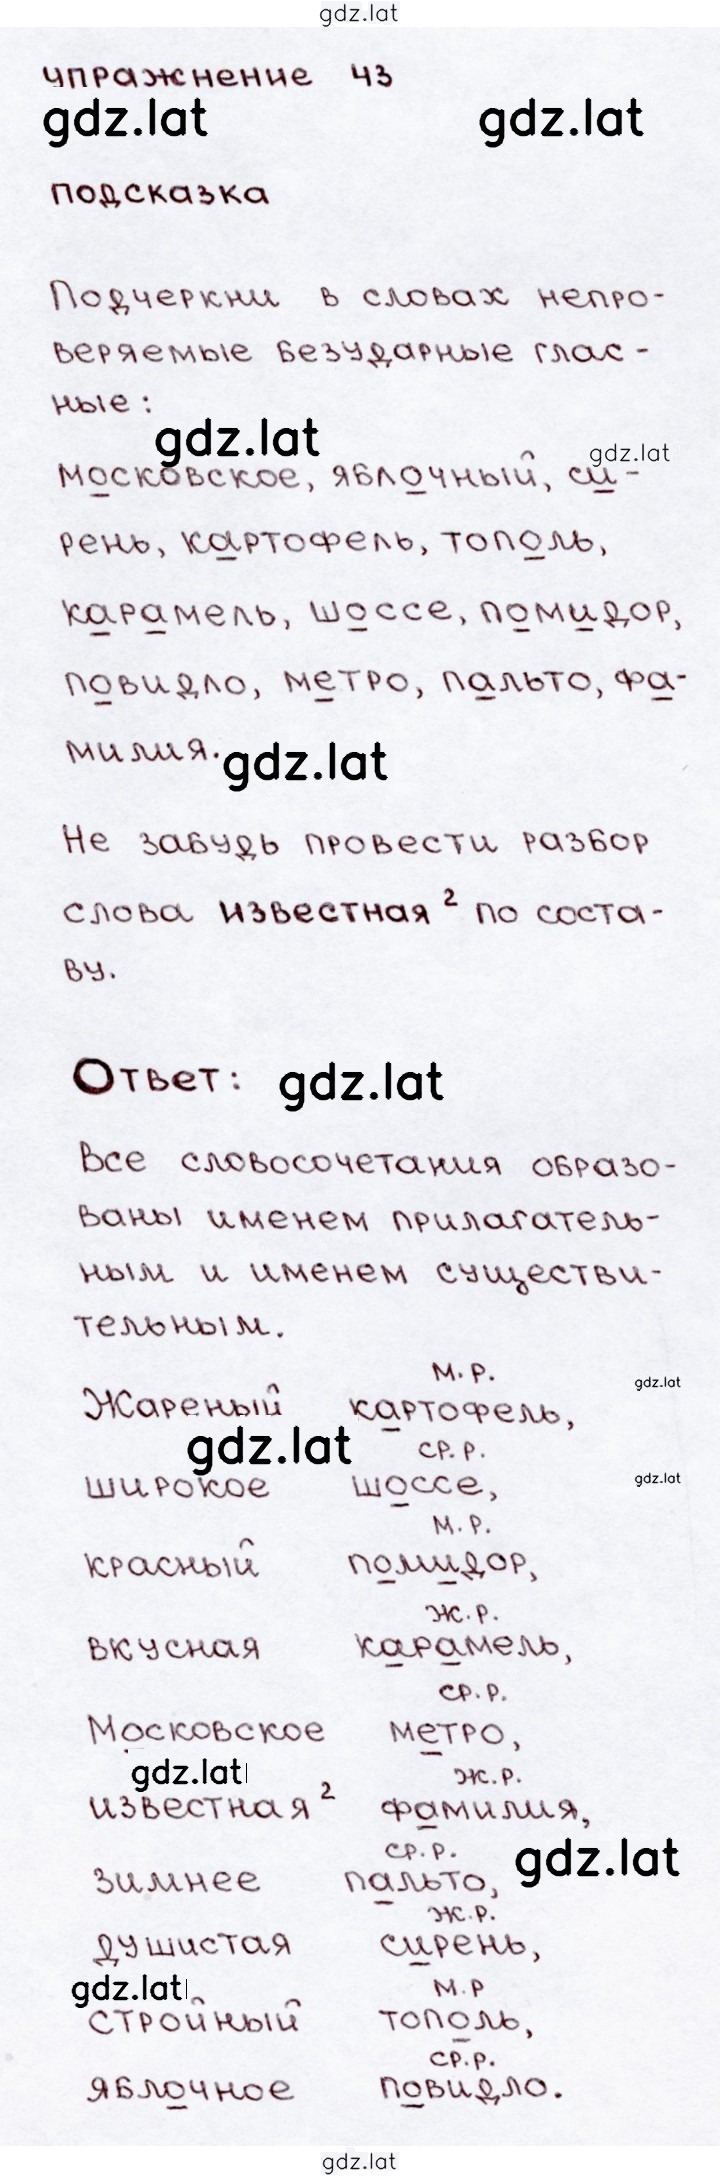 gdz.lat
упражнение 43
gdz.lat gdz.lat
подсказка
Подчеркни в словах непро-
веряемые безударные глас-
ные:
gdz.lat
gdz.lat
московское, яблочный, си-
рень, картофель, тополь,
карамель, шоссе, помидор,
повидло, метро, пальто, фа-
милия.
gdz.lat
Не забудь провести разбор
слова известная ² по соста-
ву.
Ответ: gdz.lat
Все словосочетания образо-
ваны именем прилагатель-
ным и именем существи-
тельным.
м.р.
gdz.lat
Жареный картофель,
gdz.lat
ср.р.
gdz.lat
широкое шоссе,
м.р.
красный помидор,
ж.р.
вкусная карамель,
ср.р.
Московское метро,
gdz.lat
ж.р.
известная ² фамилия,
ср.р.
gdz.lat
зимнее пальто,
ж.р.
душистая сирень,
gdz.lat
м.р
стройный тополь,
ср.р.
яблочное повидло.
gdz.lat